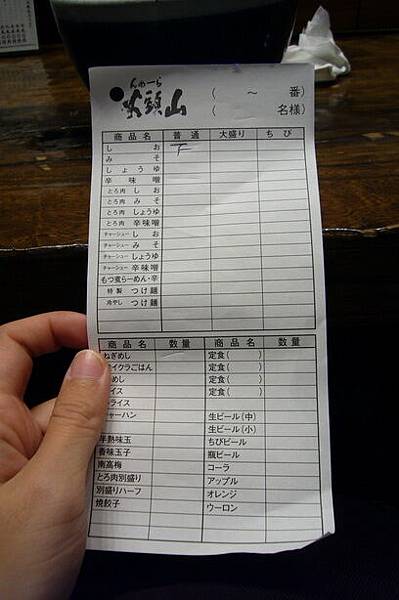 らーめん
山頭火
( 〜 番)
( 名様)
商品名 普通 大盛り ちび
しお 丅
みそ
しょうゆ
辛味噌
とろ肉 しお
とろ肉 みそ
とろ肉 しょうゆ
とろ肉 辛味噌
チャーシュー しお
チャーシュー みそ
チャーシュー しょうゆ
チャーシュー 辛味噌
もつ煮らーめん・辛
特製 つけ麺
冷やし つけ麺
商品名 数量 商品名 数量
ねぎめし 定食( )
イクラごはん 定食( )
めし 定食( )
イス 定食( )
ライス
チャーハン 生ビール(中)
生ビール(小)
半熟味玉 ちびビール
香味玉子 瓶ビール
南高梅 コーラ
とろ肉別盛り アップル
別盛りハーフ オレンジ
焼餃子 ウーロン